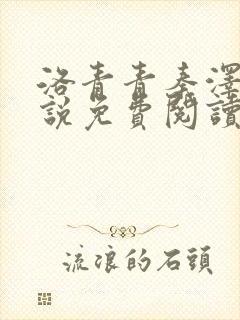 洛青青秦澤
說免費閱讀
流浪的石頭